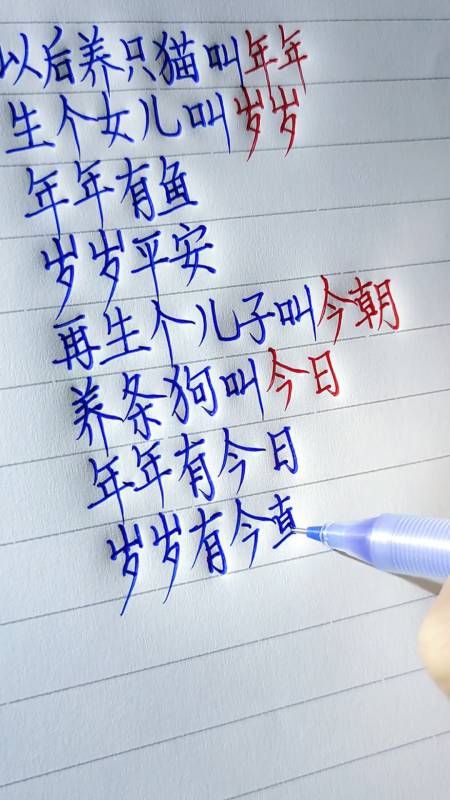 以后养只猫叫年年
生个女儿叫岁岁
年年有鱼
岁岁平安
再生个儿子叫今朝
养条狗叫今日
年年有今日
岁岁有今